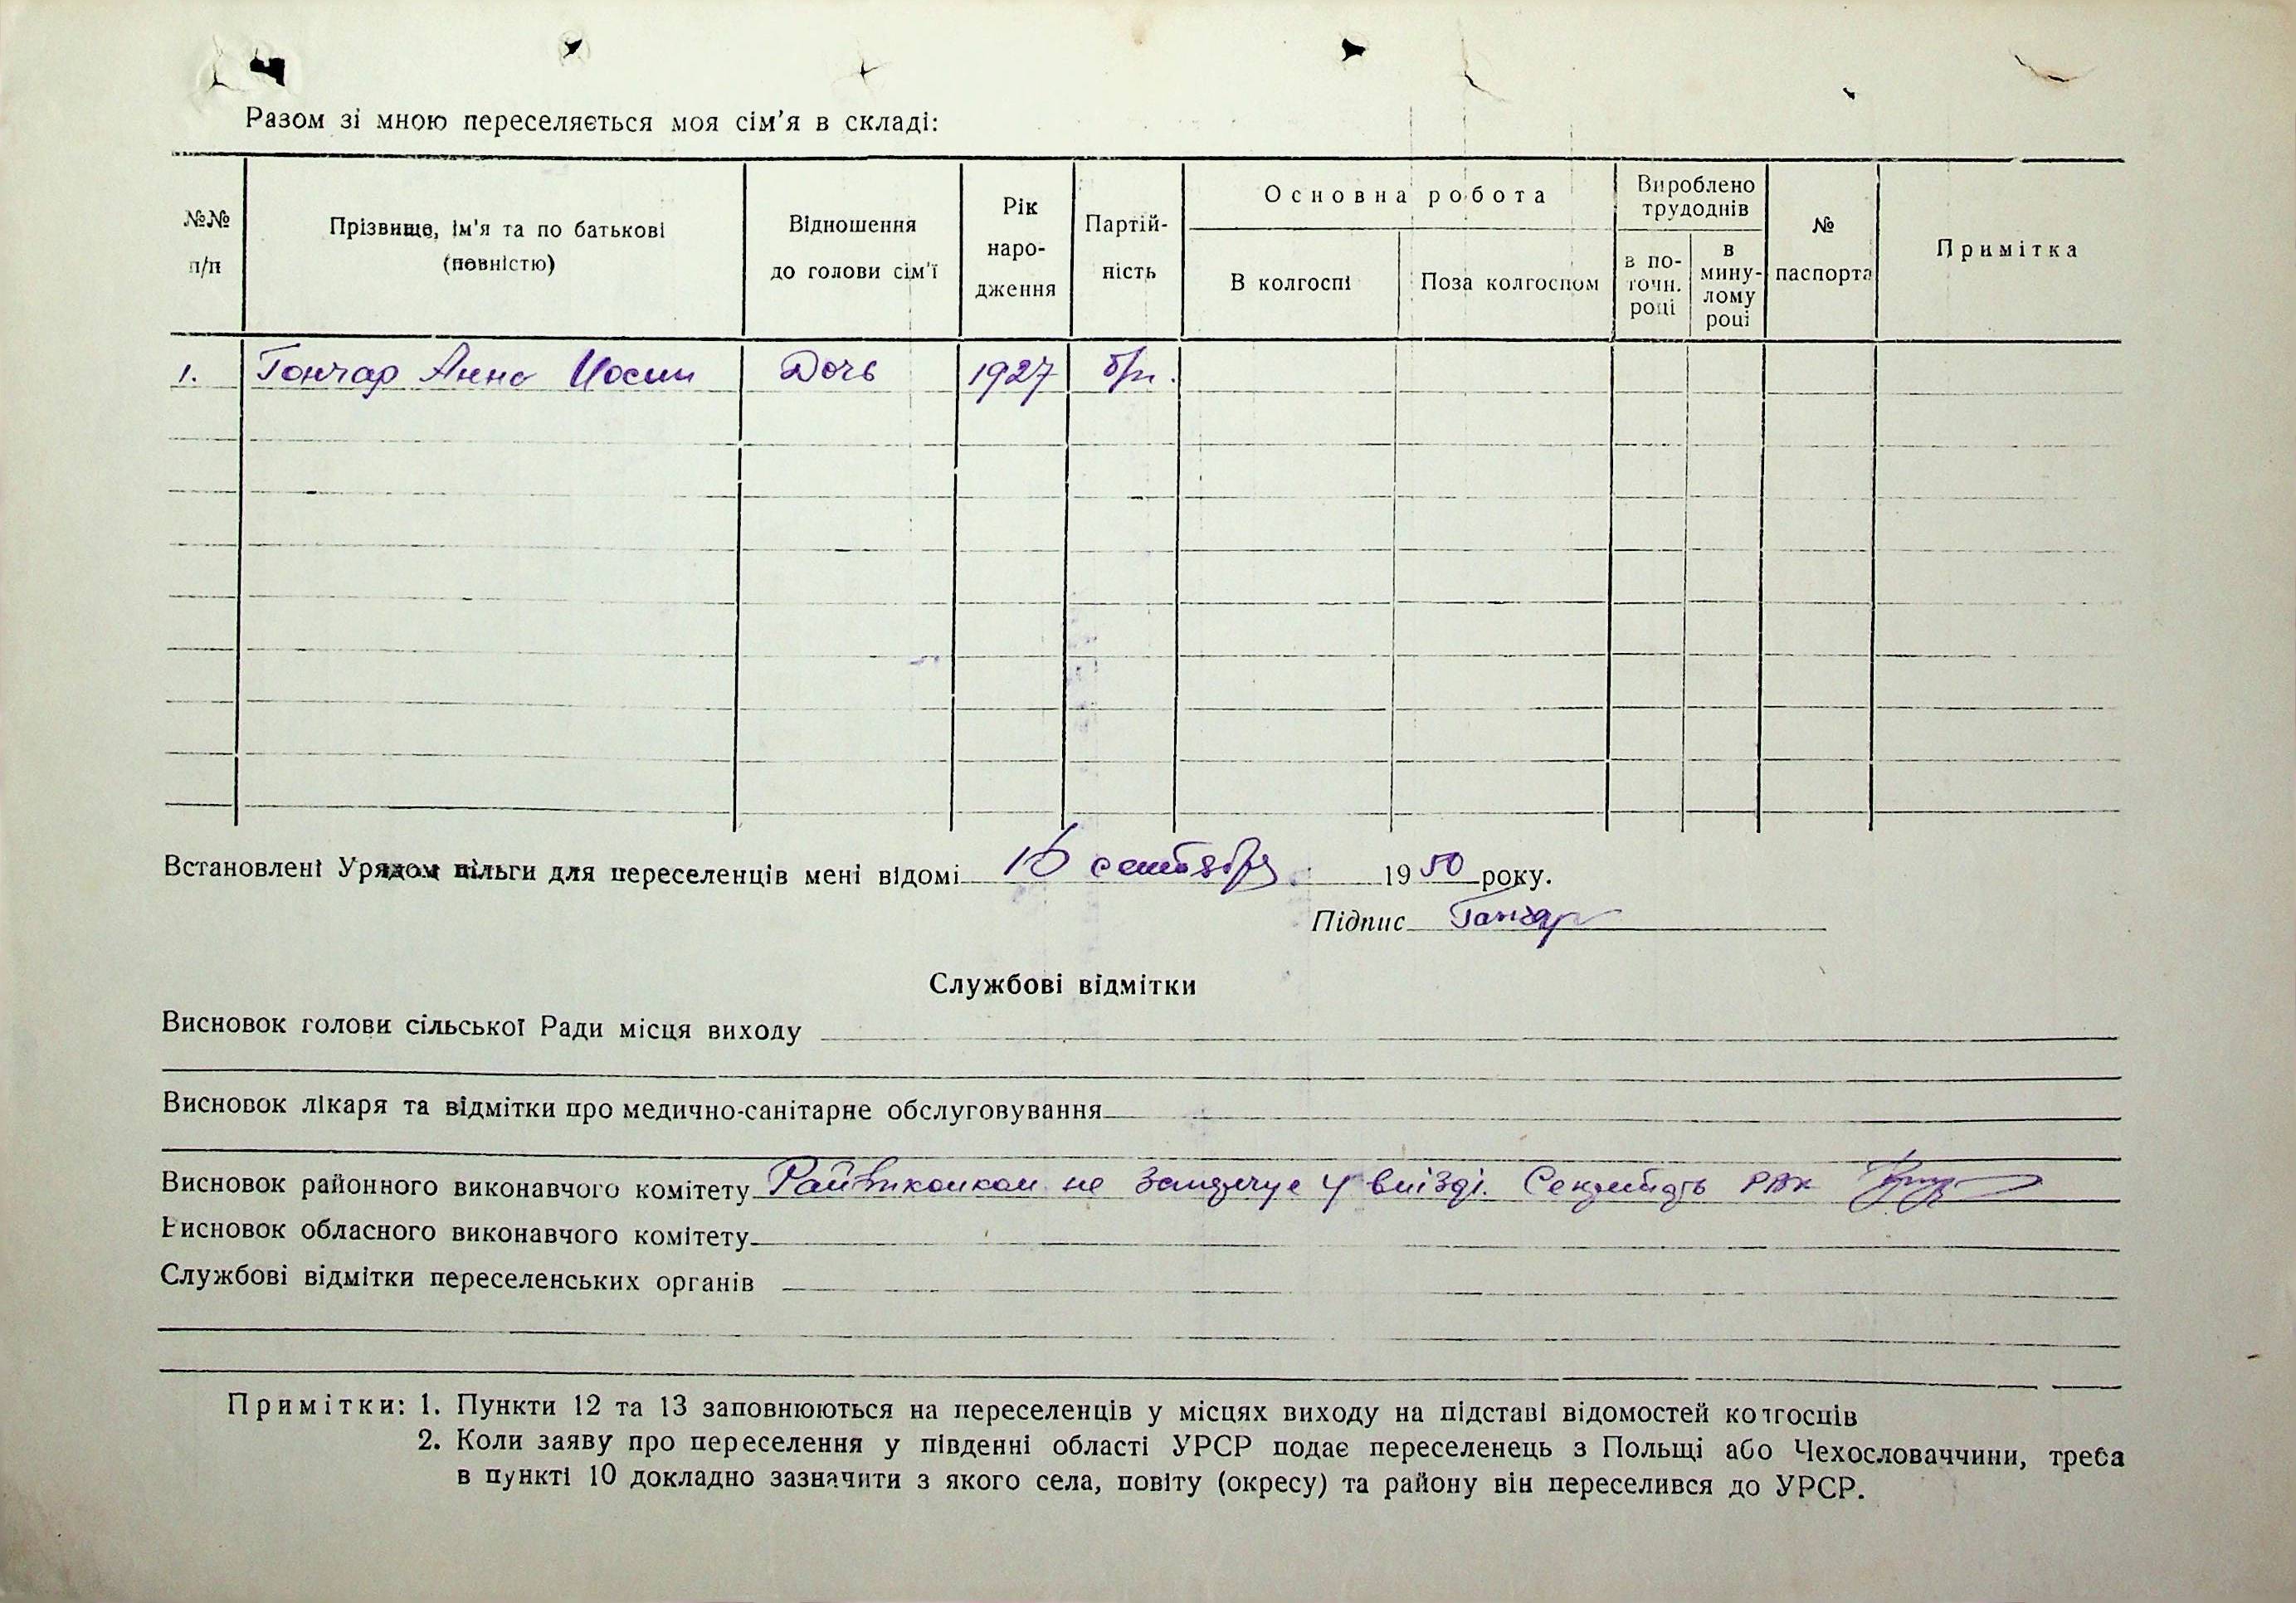 Разом зі мною переселяється моя сім'я в складі:
№№ п/п
Прізвище, ім'я та по батькові (повністю)
Відношення до голови сім'ї
Рік народження
Партійність
Основна робота
В колгоспі
Поза колгоспом
Вироблено трудоднів
в поточн. році
в минулому році
№ паспорта
Примітка
1. Гончар Анна Иосип Дочь 1927 б/п.
Встановлені Урядом пільги для переселенців мені відомі 16 сентября 1950 року.
Підпис Гончар
Службові відмітки
Висновок голови сільської Ради місця виходу
Висновок лікаря та відмітки про медично-санітарне обслуговування
Висновок районного виконавчого комітету Райвиконком не заперечує у виїзді. Секретарь РВК
Висновок обласного виконавчого комітету
Службові відмітки переселенських органів
Примітки: 1. Пункти 12 та 13 заповнюються на переселенців у місцях виходу на підставі відомостей колгоспів
2. Коли заяву про переселення у південні області УРСР подає переселенець з Польщі або Чехословаччини, треба
в пункті 10 докладно зазначити з якого села, повіту (окресу) та району він переселився до УРСР.